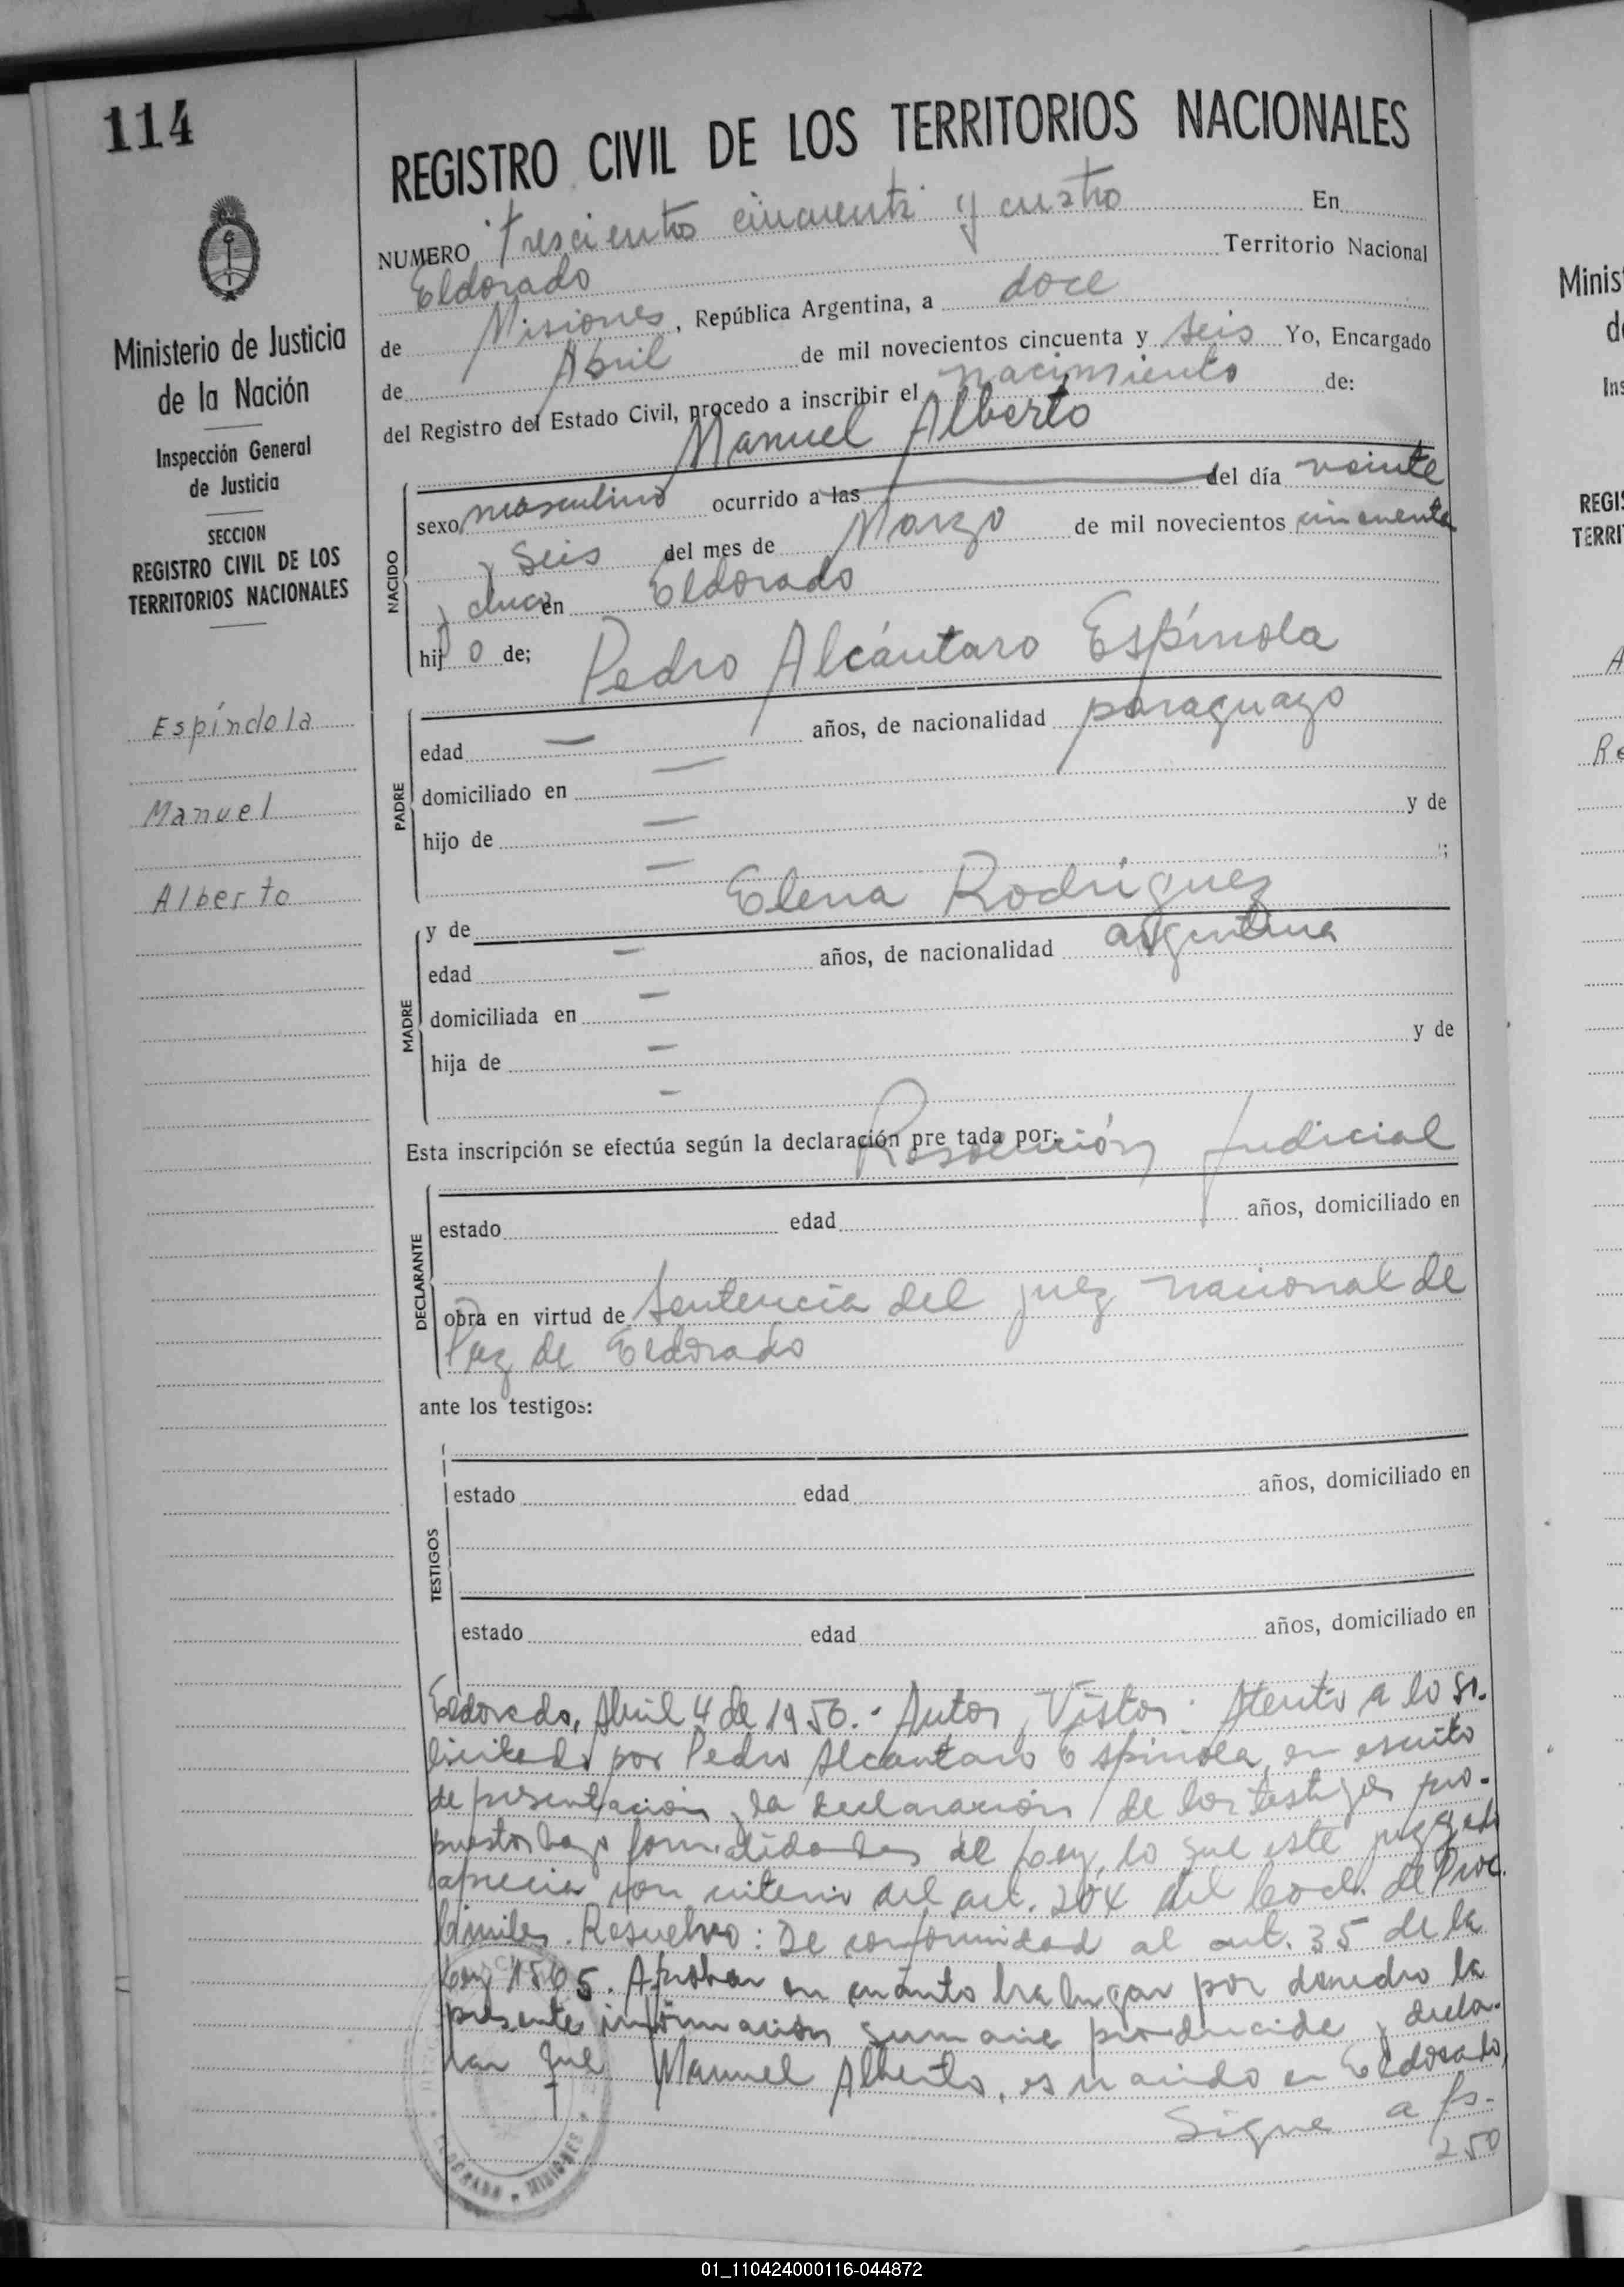 114
REGISTRO CIVIL DE LOS TERRITORIOS NACIONALES
NUMERO trescientos cincuenta y cuatro En
Eldorado Territorio Nacional
de Misiones, República Argentina, a doce
de Abril de mil novecientos cincuenta y seis Yo, Encargado
del Registro del Estado Civil, procedo a inscribir el nacimiento de:
Manuel Alberto
Ministerio de Justicia
de la Nación
Inspección General
de Justicia
SECCION
REGISTRO CIVIL DE LOS
TERRITORIOS NACIONALES
Espíndola
Manuel
Alberto
NACIDO
sexo masculino ocurrido a las del día veinte
y seis del mes de Marzo de mil novecientos cincuenta
y cinco en Eldorado
hij o de; Pedro Alcántaro Espínola
PADRE
edad — años, de nacionalidad paraguayo
domiciliado en —
hijo de — y de
— ;
MADRE
y de Elena Rodriguez
edad — años, de nacionalidad argentina
domiciliada en —
hija de — y de
—
Esta inscripción se efectúa según la declaración pre tada por: Resolución judicial
DECLARANTE
estado edad años, domiciliado en
obra en virtud de sentencia del juez nacional de
Paz de Eldorado
ante los testigos:
TESTIGOS
estado edad años, domiciliado en
estado edad años, domiciliado en
Eldorado, Abril 4 de 1956.- Autos, Vistos: Atento a lo so-
licitado por Pedro Alcántaro Espínola, en escrito
de presentación, la declaración de los testigos pro-
puestos bajo formalidades de Ley, lo que este juzgado
aprecia con criterio del art. del Cod. de Proc.
Civiles. Resuelvo: De conformidad al art. 35 de la
Ley 1565. Aprobar en cuanto ha lugar por derecho la
presente información sumaria producida y decla-
rar que Manuel Alberto, es nacido en Eldorado,
Sigue a fs.
250
ELDORADO - MISIONES
Minis
d
Ins
REGIS
TERRI
A
Re
01_110424000116-044872